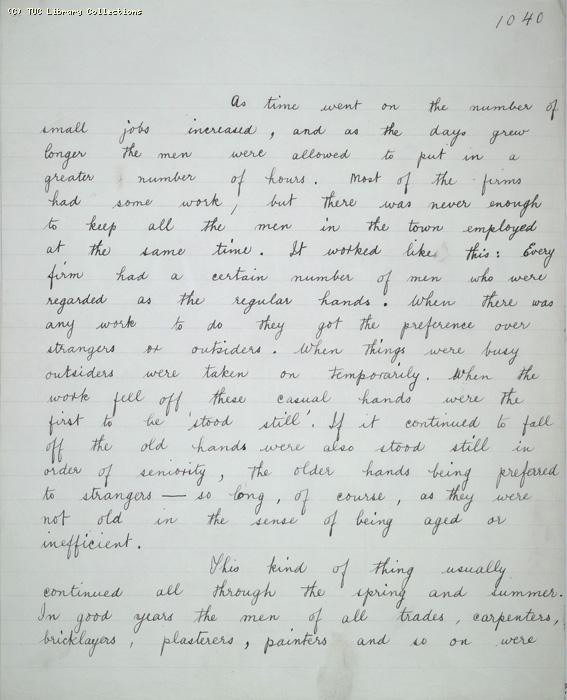 (C) TUC Library Collections
1040
As time went on the number of
small jobs increased, and as the days grew
longer the men were allowed to put in a
greater number of hours. Most of the firms
had some work, but there was never enough
to keep all the men in the town employed
at the same time. It worked like this: Every
firm had a certain number of men who were
regarded as the regular hands. When there was
any work to do they got the preference over
strangers or outsiders. When things were busy
outsiders were taken on temporarily. When the
work fell off these casual hands were the
first to be 'stood still'. If it continued to fall
off the old hands were also stood still in
order of seniority, the older hands being preferred
to strangers — so long, of course, as they were
not old in the sense of being aged or
inefficient.
This kind of thing usually
continued all through the spring and summer.
In good years the men of all trades, carpenters,
bricklayers, plasterers, painters and so on were